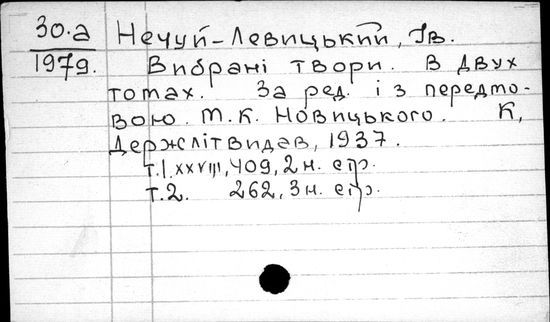 30.а
1979.
Нечуй-Левицький, Ів.
Вибрані твори. В двух
томах. За ред. і з передмо-
вою М.К. Новицького. К,
Держлітвидав, 1937.
т.I. XXVIII, 409, 2 н. стр.
т.2. 262, 3 н. стр.